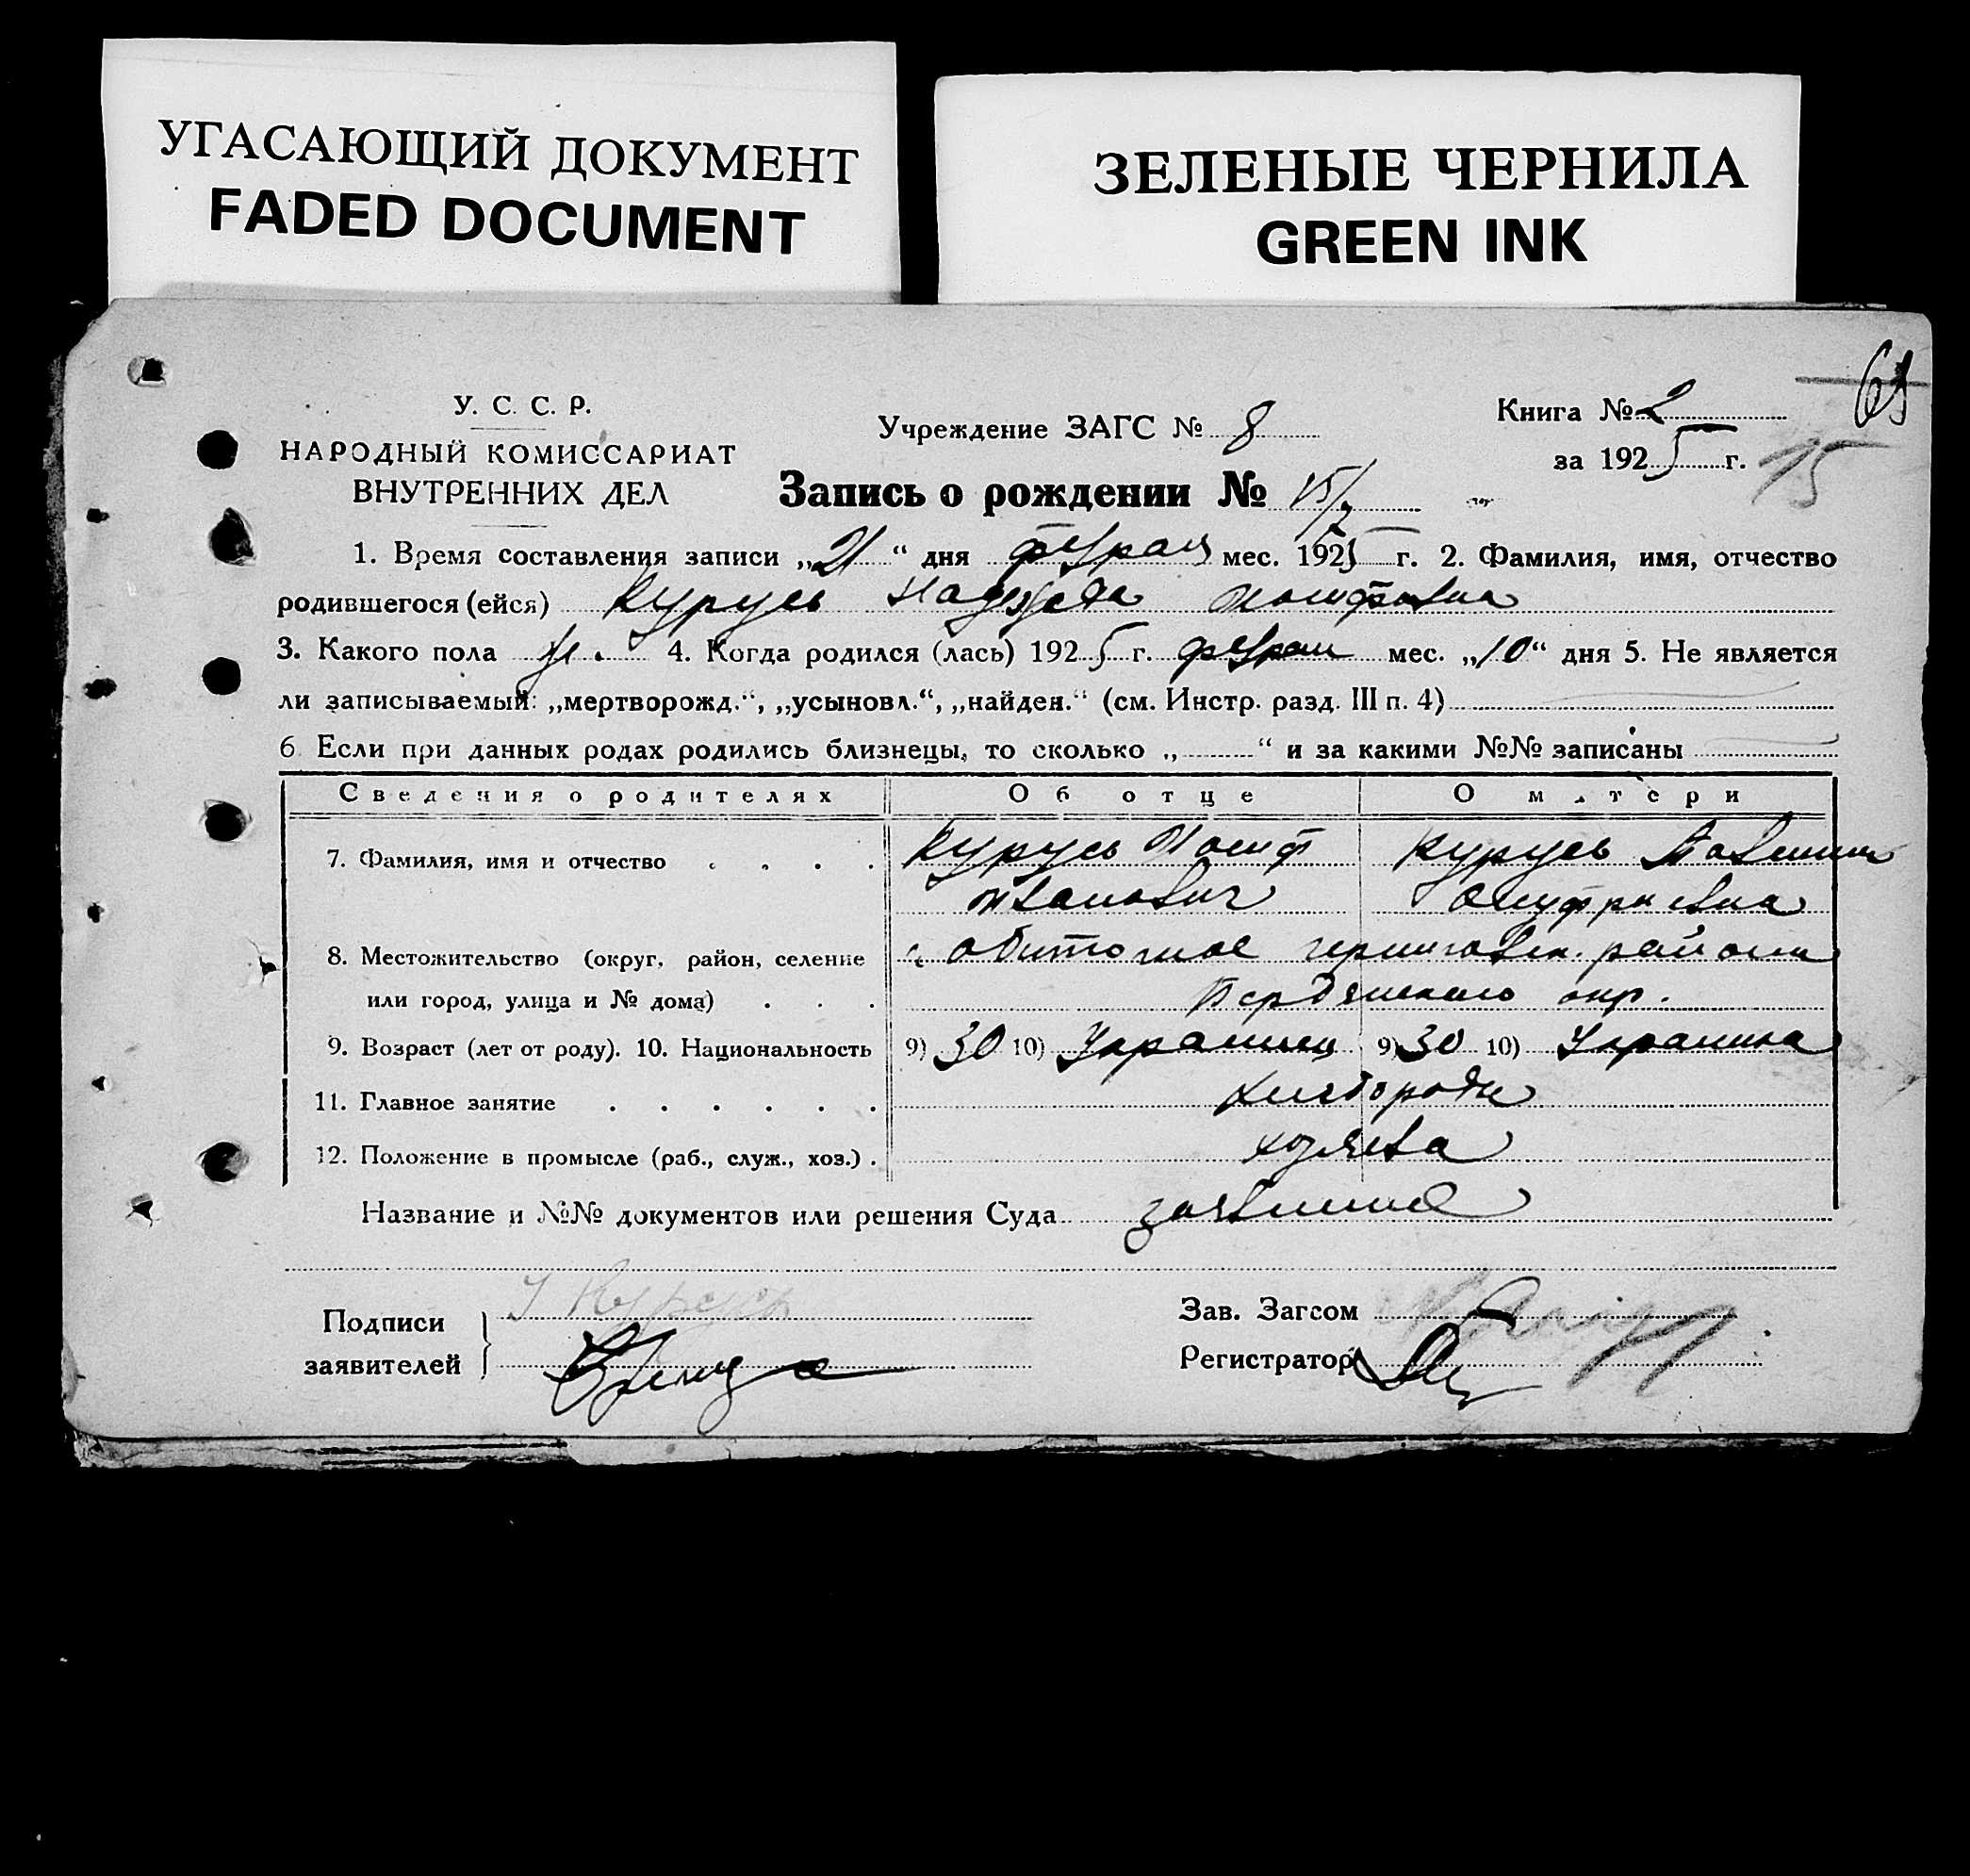 УГАСАЮЩИЙ ДОКУМЕНТ
FADED DOCUMENT
ЗЕЛЕНЫЕ ЧЕРНИЛА
GREEN INK
У. С. С. Р.
НАРОДНЫЙ КОМИССАРИАТ
ВНУТРЕННИХ ДЕЛ
Учреждение ЗАГС № 8
Книга № 2
за 1925 г. 15
Запись о рождении № 15/7
1. Время составления записи „21“ дня мес. 1925 г. 2. Фамилия, имя, отчество
родившегося (ейся) Курусь Надежда Иосифовна
3. Какого пола ж. 4. Когда родился (лась) 1925 г. мес. „10“ дня 5. Не является
ли записываемый: „мертворожд.“, „усыновл.“, „найден.“ (см. Инстр. разд. III п. 4)
6 Если при данных родах родились близнецы, то сколько „ “ и за какими №№ записаны
Сведения о родителях Об отце О матери
7. Фамилия, имя и отчество Курусь Иосиф Курусь
Иванович Онуфриевна
8. Местожительство (округ, район, селение с Обиточное черниговск. района
или город, улица и № дома) Бердянского окр.
9. Возраст (лет от роду). 10. Национальность 9) 30 10) Украинец 9) 30 10) Украинка
11. Главное занятие
12. Положение в промысле (раб., служ., хоз.) хозяева
Название и №№ документов или решения Суда заявление
Подписи І Курусь
заявителей
Зав. Загсом
Регистратор